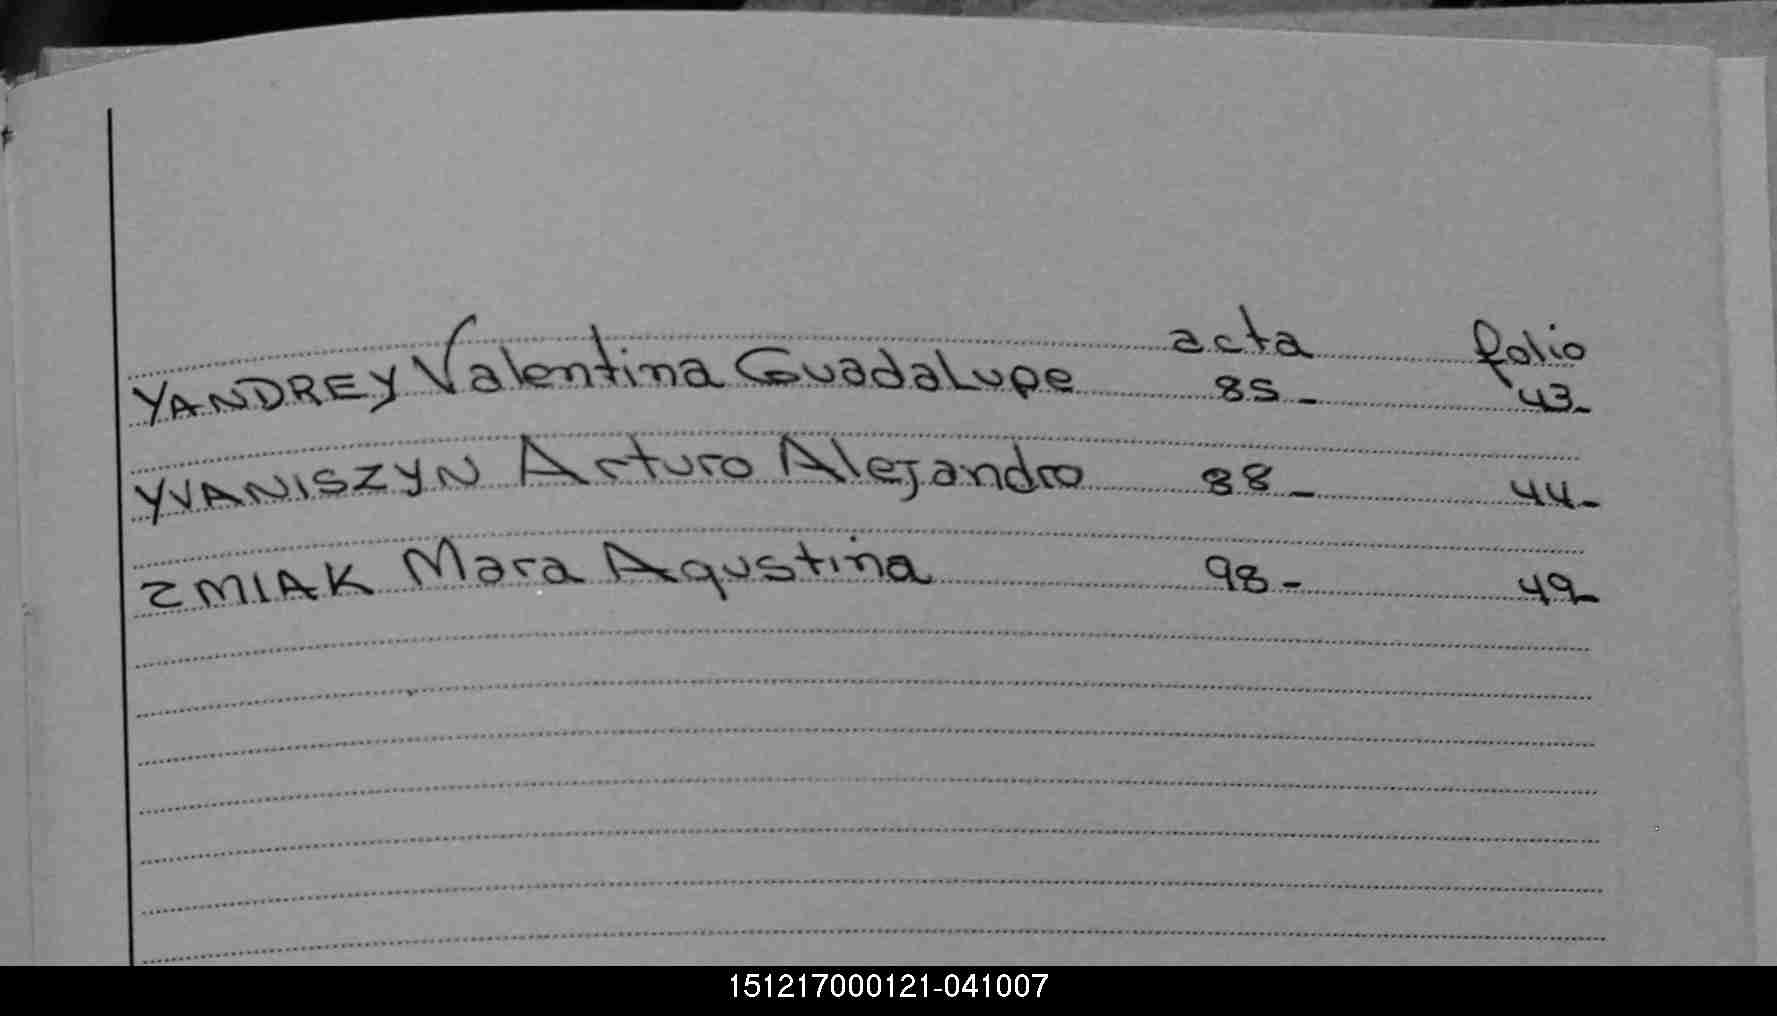 acta folio
YANDREY Valentina Guadalupe 85- 43-
YVANISZYN Arturo Alejandro 88- 44-
ZMIAK Mara Agustina 98- 49-
151217000121-041007